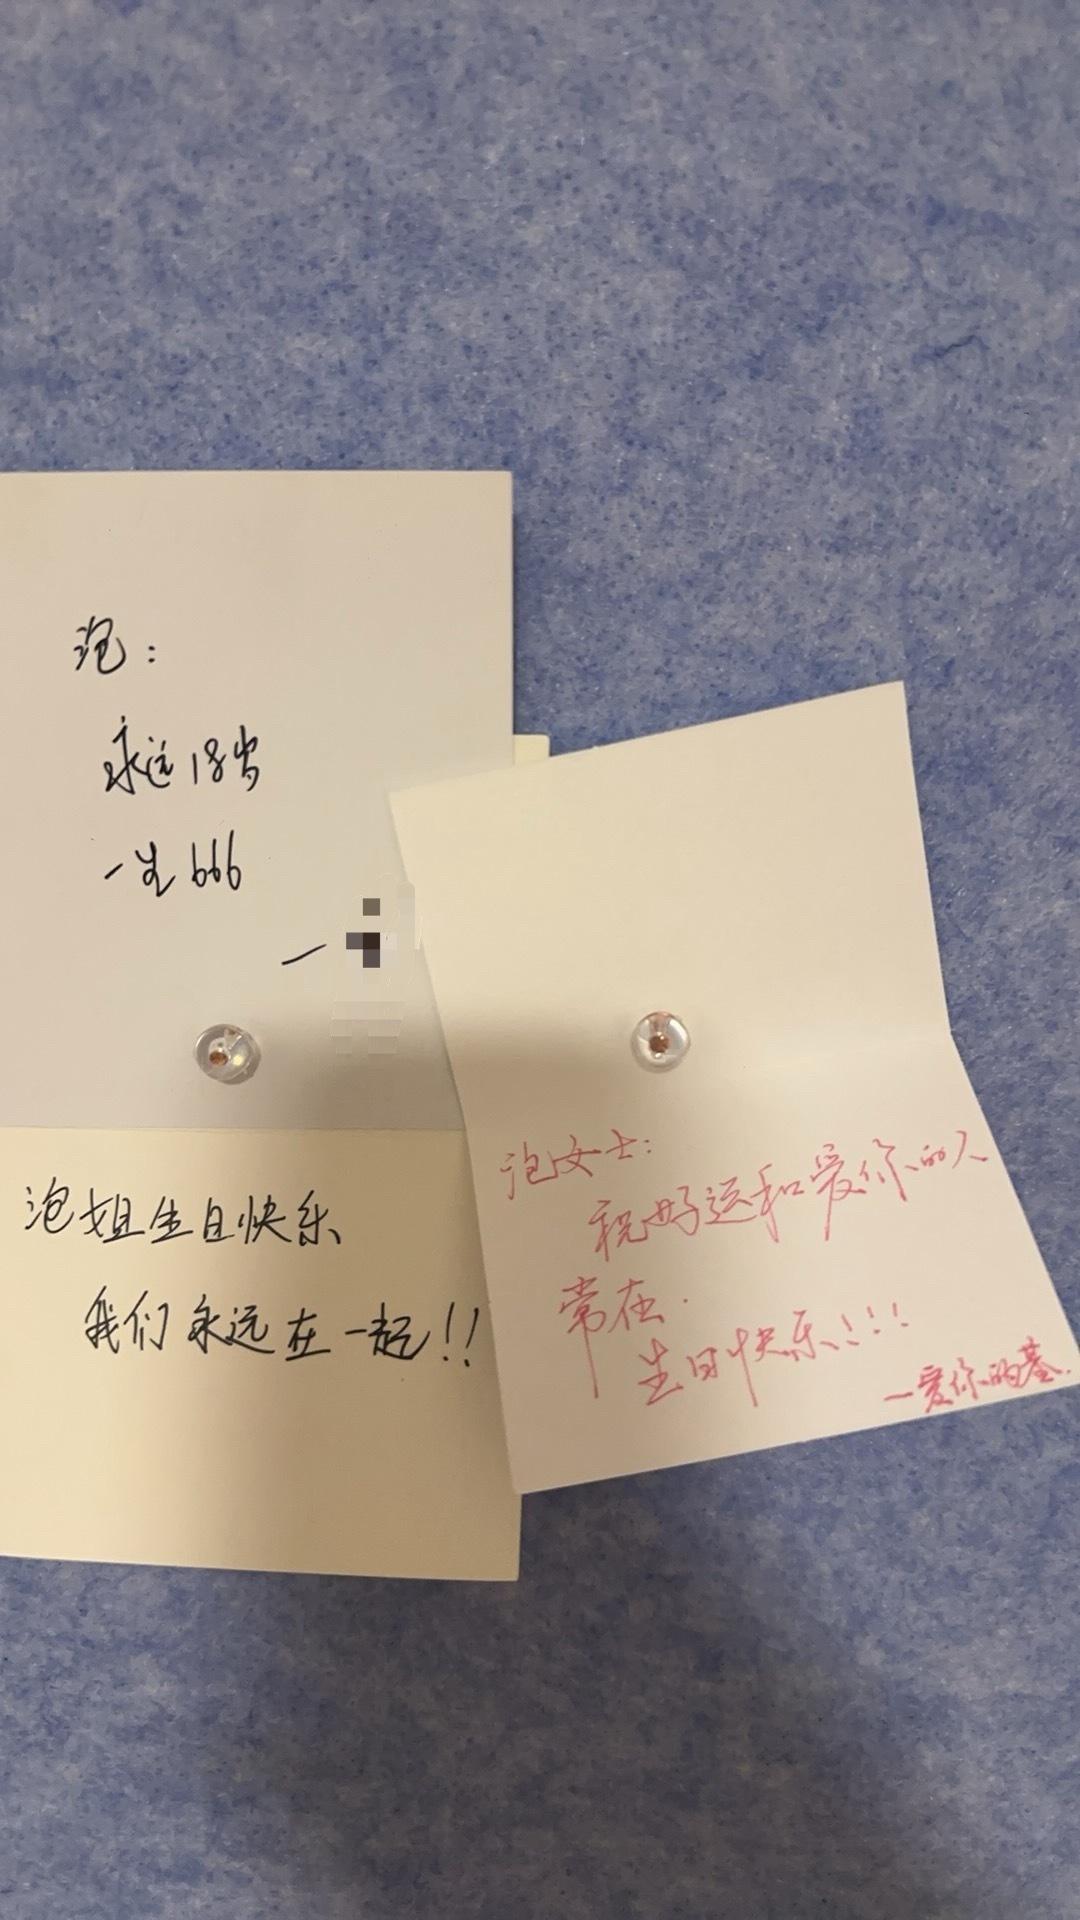 泡：
永远18岁
一生666
—
泡姐生日快乐
我们永远在一起!!
泡女士：
祝好运和爱你的人
常在.
生日快乐!!!
—爱你的基.